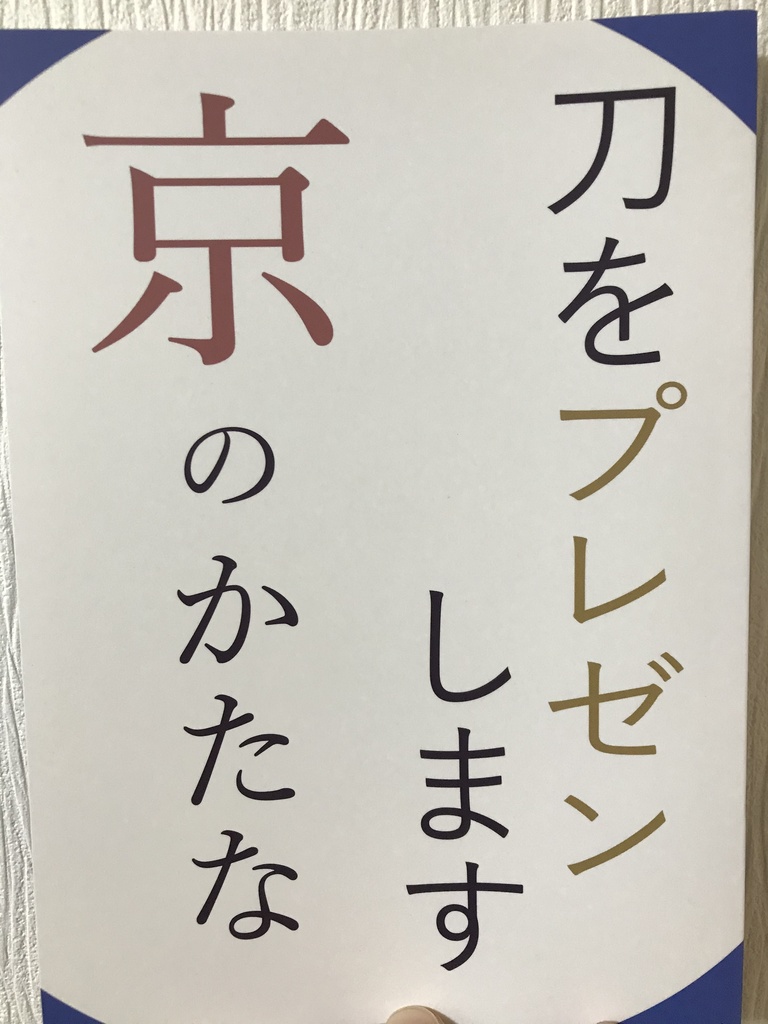 刀をプレゼン
します
京のかたな